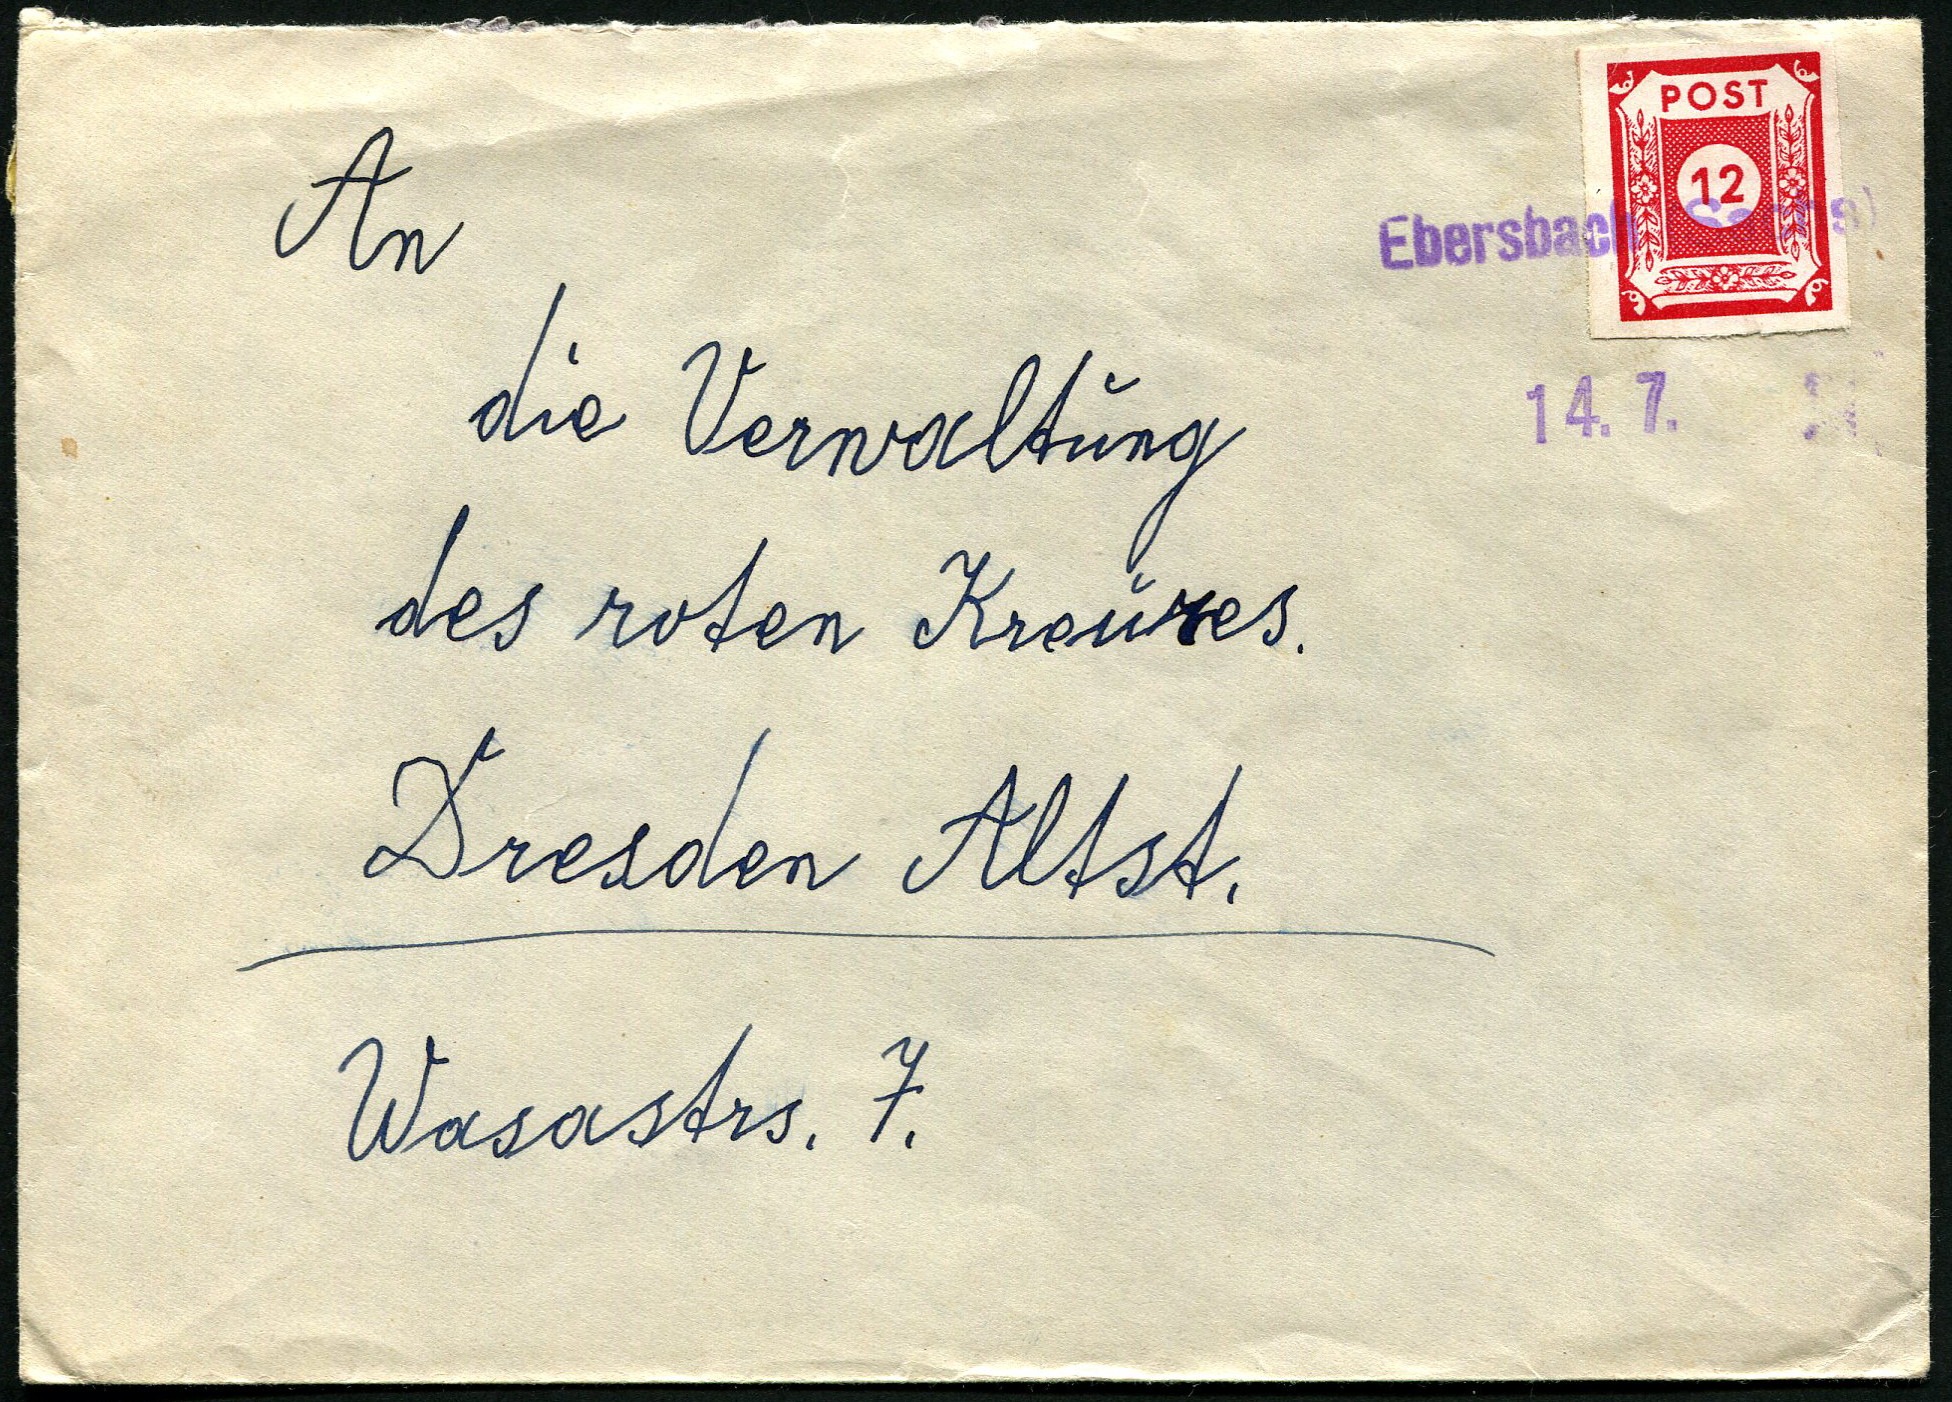 POST
12
Ebersbach (Sachsa)
14. 7.
An
die Verwaltung
des roten Kreuzes.
Dresden Altst.
Wasastrs. 7.